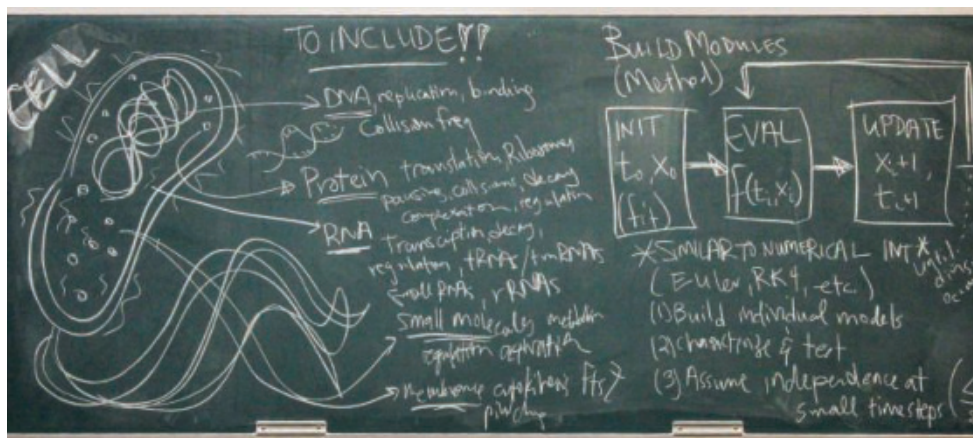 CELL
TO INCLUDE!!
DNA, replication, binding
Collision freq
Protein translation, Ribosomes
pausing, collisions, decay
complexation, regulation
RNA transcription, decay,
regulation, tRNAs/tmRNAs
small RNAs, rRNAs
Small molecules
regulation
Membrane cytokinesis fts
pinching
BUILD MODULES
(Method)
INIT
t₀, x₀
EVAL
f(tᵢ, xᵢ)
UPDATE
xᵢ+1,
tᵢ+1
*SIMILAR TO NUMERICAL INT*
(Euler, RK4, etc)
(1) Build individual models
(2) characterize & test
(3) Assume independence at
small timesteps